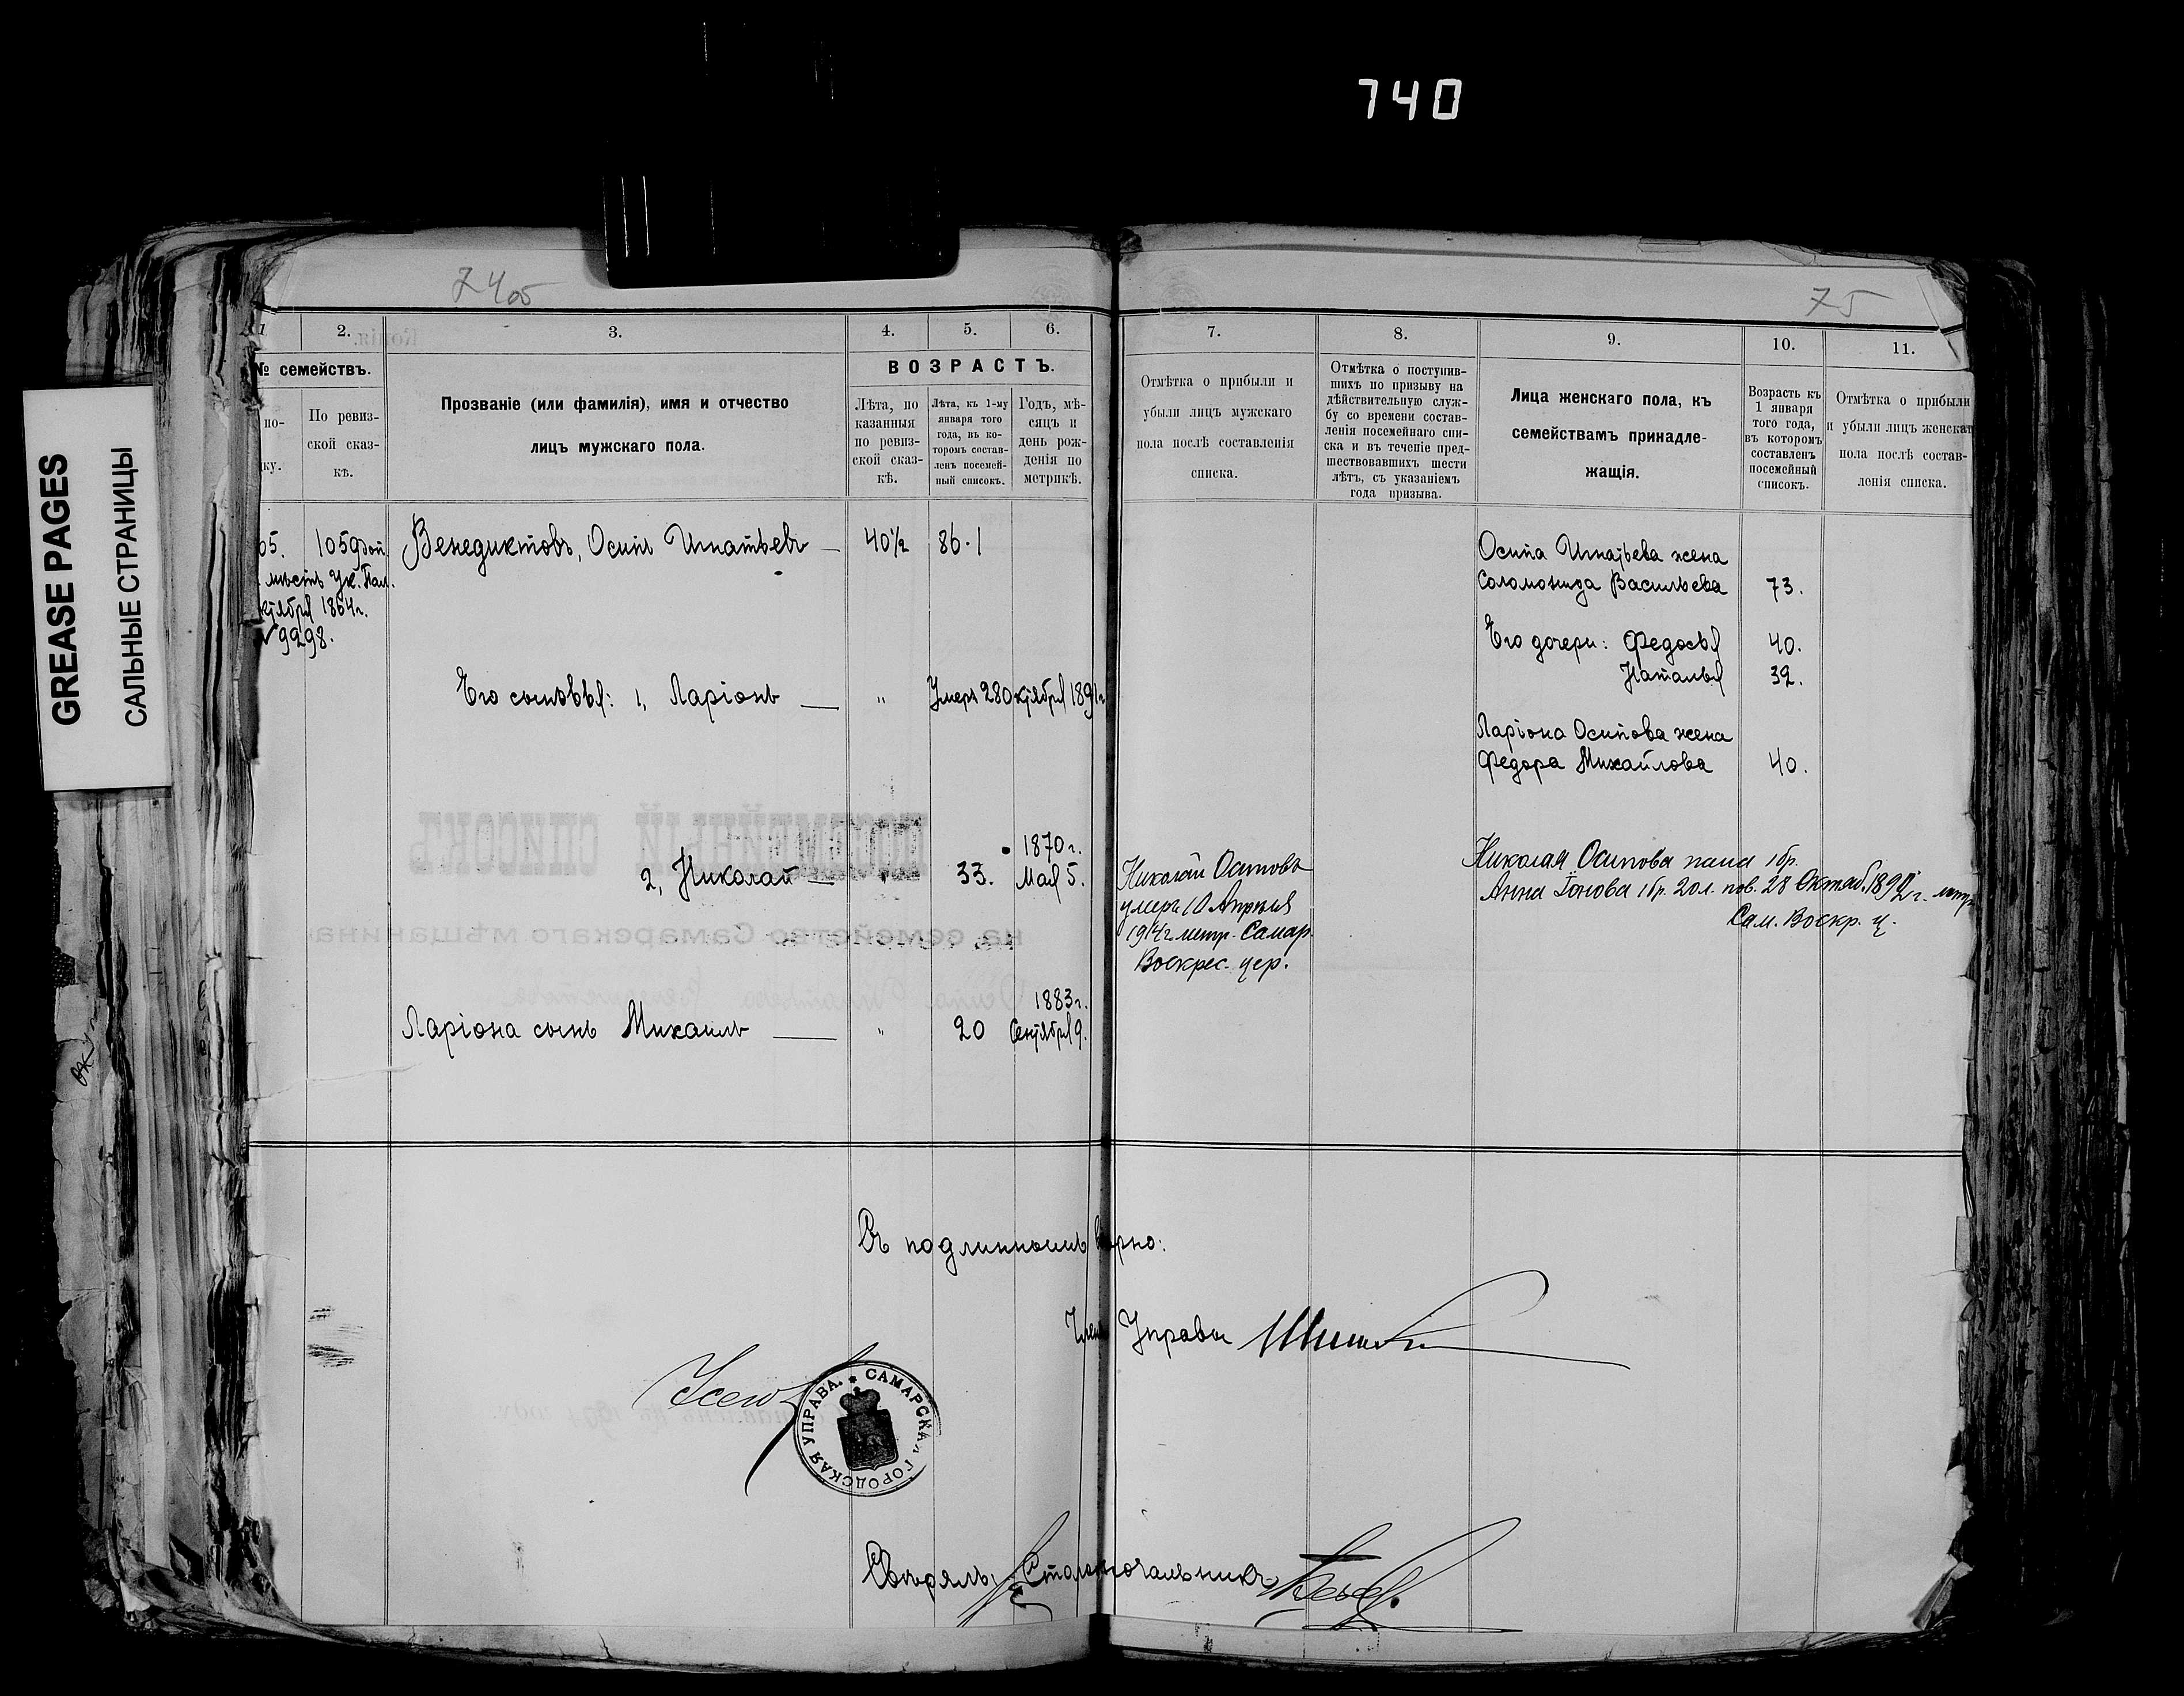 740
GREASE PAGES
САЛЬНЫЕ СТРАНИЦЫ
74об
75
1
2.
3.
4.
5.
6.
7.
8.
9.
10.
11.
№ семействъ.
По ревиз-
ской сказ-
кѣ.
Прозваніе (или фамилія), имя и отчество
лицъ мужскаго пола.
ВОЗРАСТЪ.
Лѣта, по
казанныя
по ревиз-
ской сказ-
кѣ.
Лѣта, къ 1-му
января того
года, въ ко-
торомъ состав-
ленъ посемей-
ный списокъ.
Годъ, мѣ-
сяцъ и
день рож-
денія по
метрикѣ.
Отмѣтка о прибыли и
убыли лицъ мужскаго
пола послѣ составленія
списка.
Отмѣтка о поступив-
шихъ по призыву на
дѣйствительную служ-
бу со времени состав-
ленія посемейнаго спи-
ска и въ теченіе пред-
шествовавшихъ шести
лѣтъ, съ указаніемъ
года призыва.
Лица женскаго пола, къ
семействамъ принадле-
жащія.
Возрасть къ
1 января
того года,
въ которомъ
составленъ
посемейный
списокъ.
Отмѣтка о прибыли
и убыли лицъ женскаг
пола послѣ состав-
ленія списка.
05. 1059
мѣстъ Ук. Пал.
ктября 1864г.
№ 9298.
Венедиктовъ, Осипъ Игнатьевъ — 40½ 86.
Осипа Игнатьева жена
Соломонида Васильева 73.
Его дочери: Федосья 40.
Наталья 32.
Его сыновья: 1, Ларіонъ — " Умеръ 28 Октября 1891г
Ларіона Осипова жена
Федора Михайлова 40.
2, Николай — " 33. 1870г.
Мая 5.
Николай Осиповъ
умеръ 10 Апрѣля
1914г метр. Самар.
Воскрес. цер.
Николая Осипова жена 1 бр.
Анна Іонова 1 бр. 20 л. пов. 28 Октяб. 189 г. метр
Сам. Воскр. ц.
Ларіона сынъ Михаилъ — " 20 1883г.
Сентября 9.
Съ подлиннымъ вѣрно:
Членъ Управы
САМАРСКАЯ ГОРОДСКАЯ УПРАВА.
Свѣрялъ: Столоначальникъ